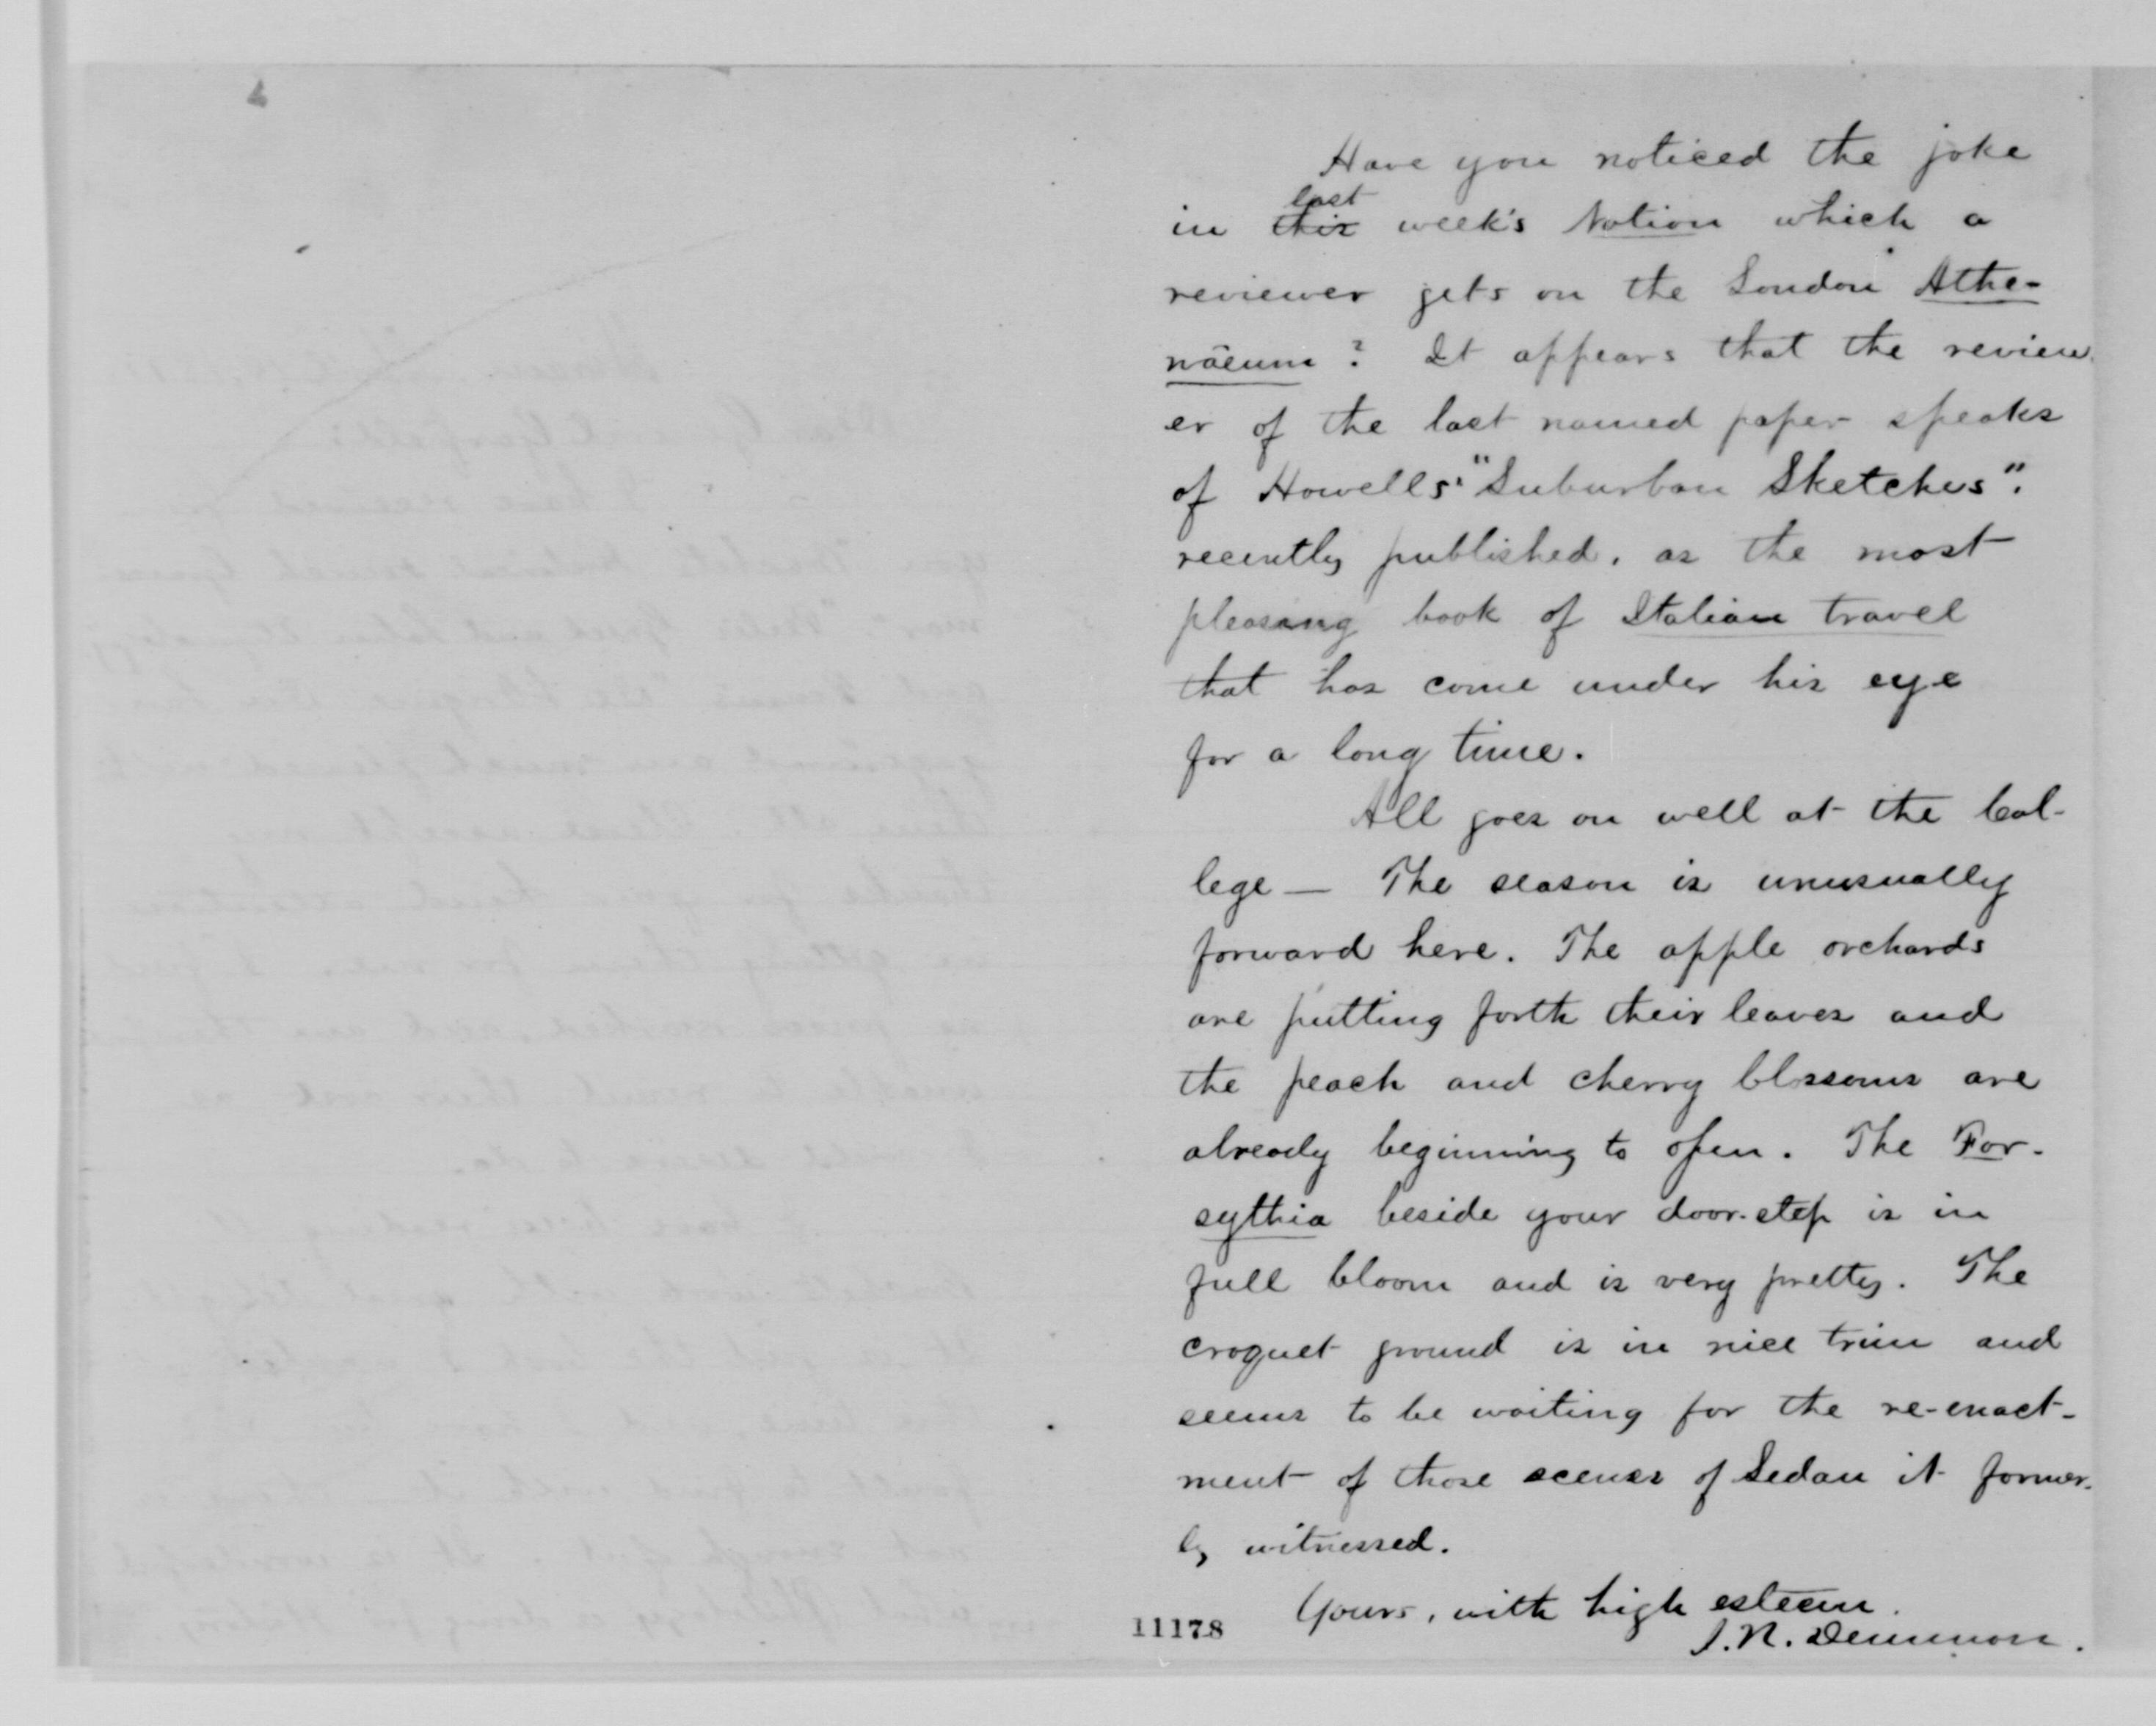 Have you noticed the joke
last
in this week's Nation which a
reviewer gets on the London Athe-
näeum? It appears that the review-
er of the last named paper speaks
of Howells' "Suburban Sketches".
recently published, as the most
pleasing book of Italian travel
that has come under his eye
for a long time.
All goes on well at the Col-
lege — The season is unusually
forward here. The apple orchards
are putting forth their leaves and
the peach and cherry blossoms are
already beginning to open. The For-
sythia beside your door-step is in
full bloom and is very pretty. The
croquet ground is in nice trim and
seems to be waiting for the re-enact-
ment of those scenes of Sedan it former-
ly witnessed.
Yours, with high esteem.
J. N. Demmon.
11178